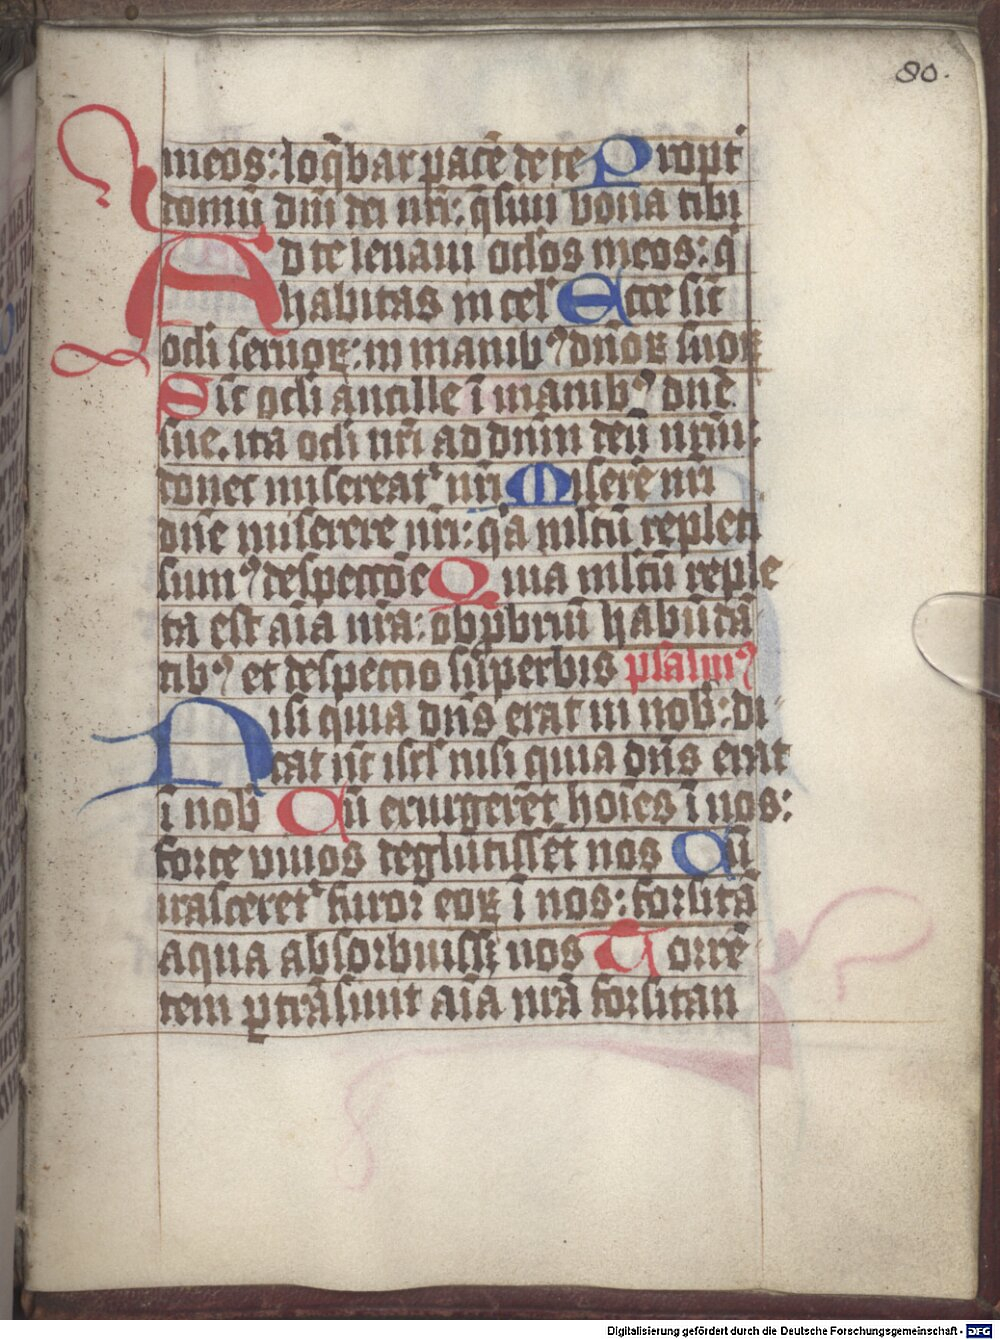 80.
meos: loq̄bar pacē de te Propt̾
domū dn̄i dei nr̄i: q̄siui bona tibi
Ad te leuaui oclos meos: q̇
habitas in cel̾ Ecce sic̄
ocli seruoꝝ: in manibꝰ dn̄oꝝ suoꝝ
Sic̄ ocli ancille ī manibꝰ dn̄e
sue. ita ocli nr̄i ad dn̄m deū nr̄m.
donec misereatᷣ nr̄i Miserē nr̄i
dn̄e miserere nr̄i: q̇a mltū repleti
sumꝰ despectōe Quia mltū reple
ta est aīa nr̄a: obp̱briū habūdā
tibꝰ et despectio suꝑbis psalmꝰ
Nisi quia dn̄s erat in nob̾: di
cat nūc isrl̾ nisi quia dn̄s erat
ī nob̾ Cū exurgerēt hoīes ī nos:
forte viuos deglutissēt nos Cū
irasceretᷣ furor eoꝝ ī nos: forsitā
aqua absorbuissꝫ nos Torrē
tem ꝑtrāsiuit aīa nr̄a forsitan
Digitalisierung gefördert durch die Deutsche Forschungsgemeinschaft - DFG